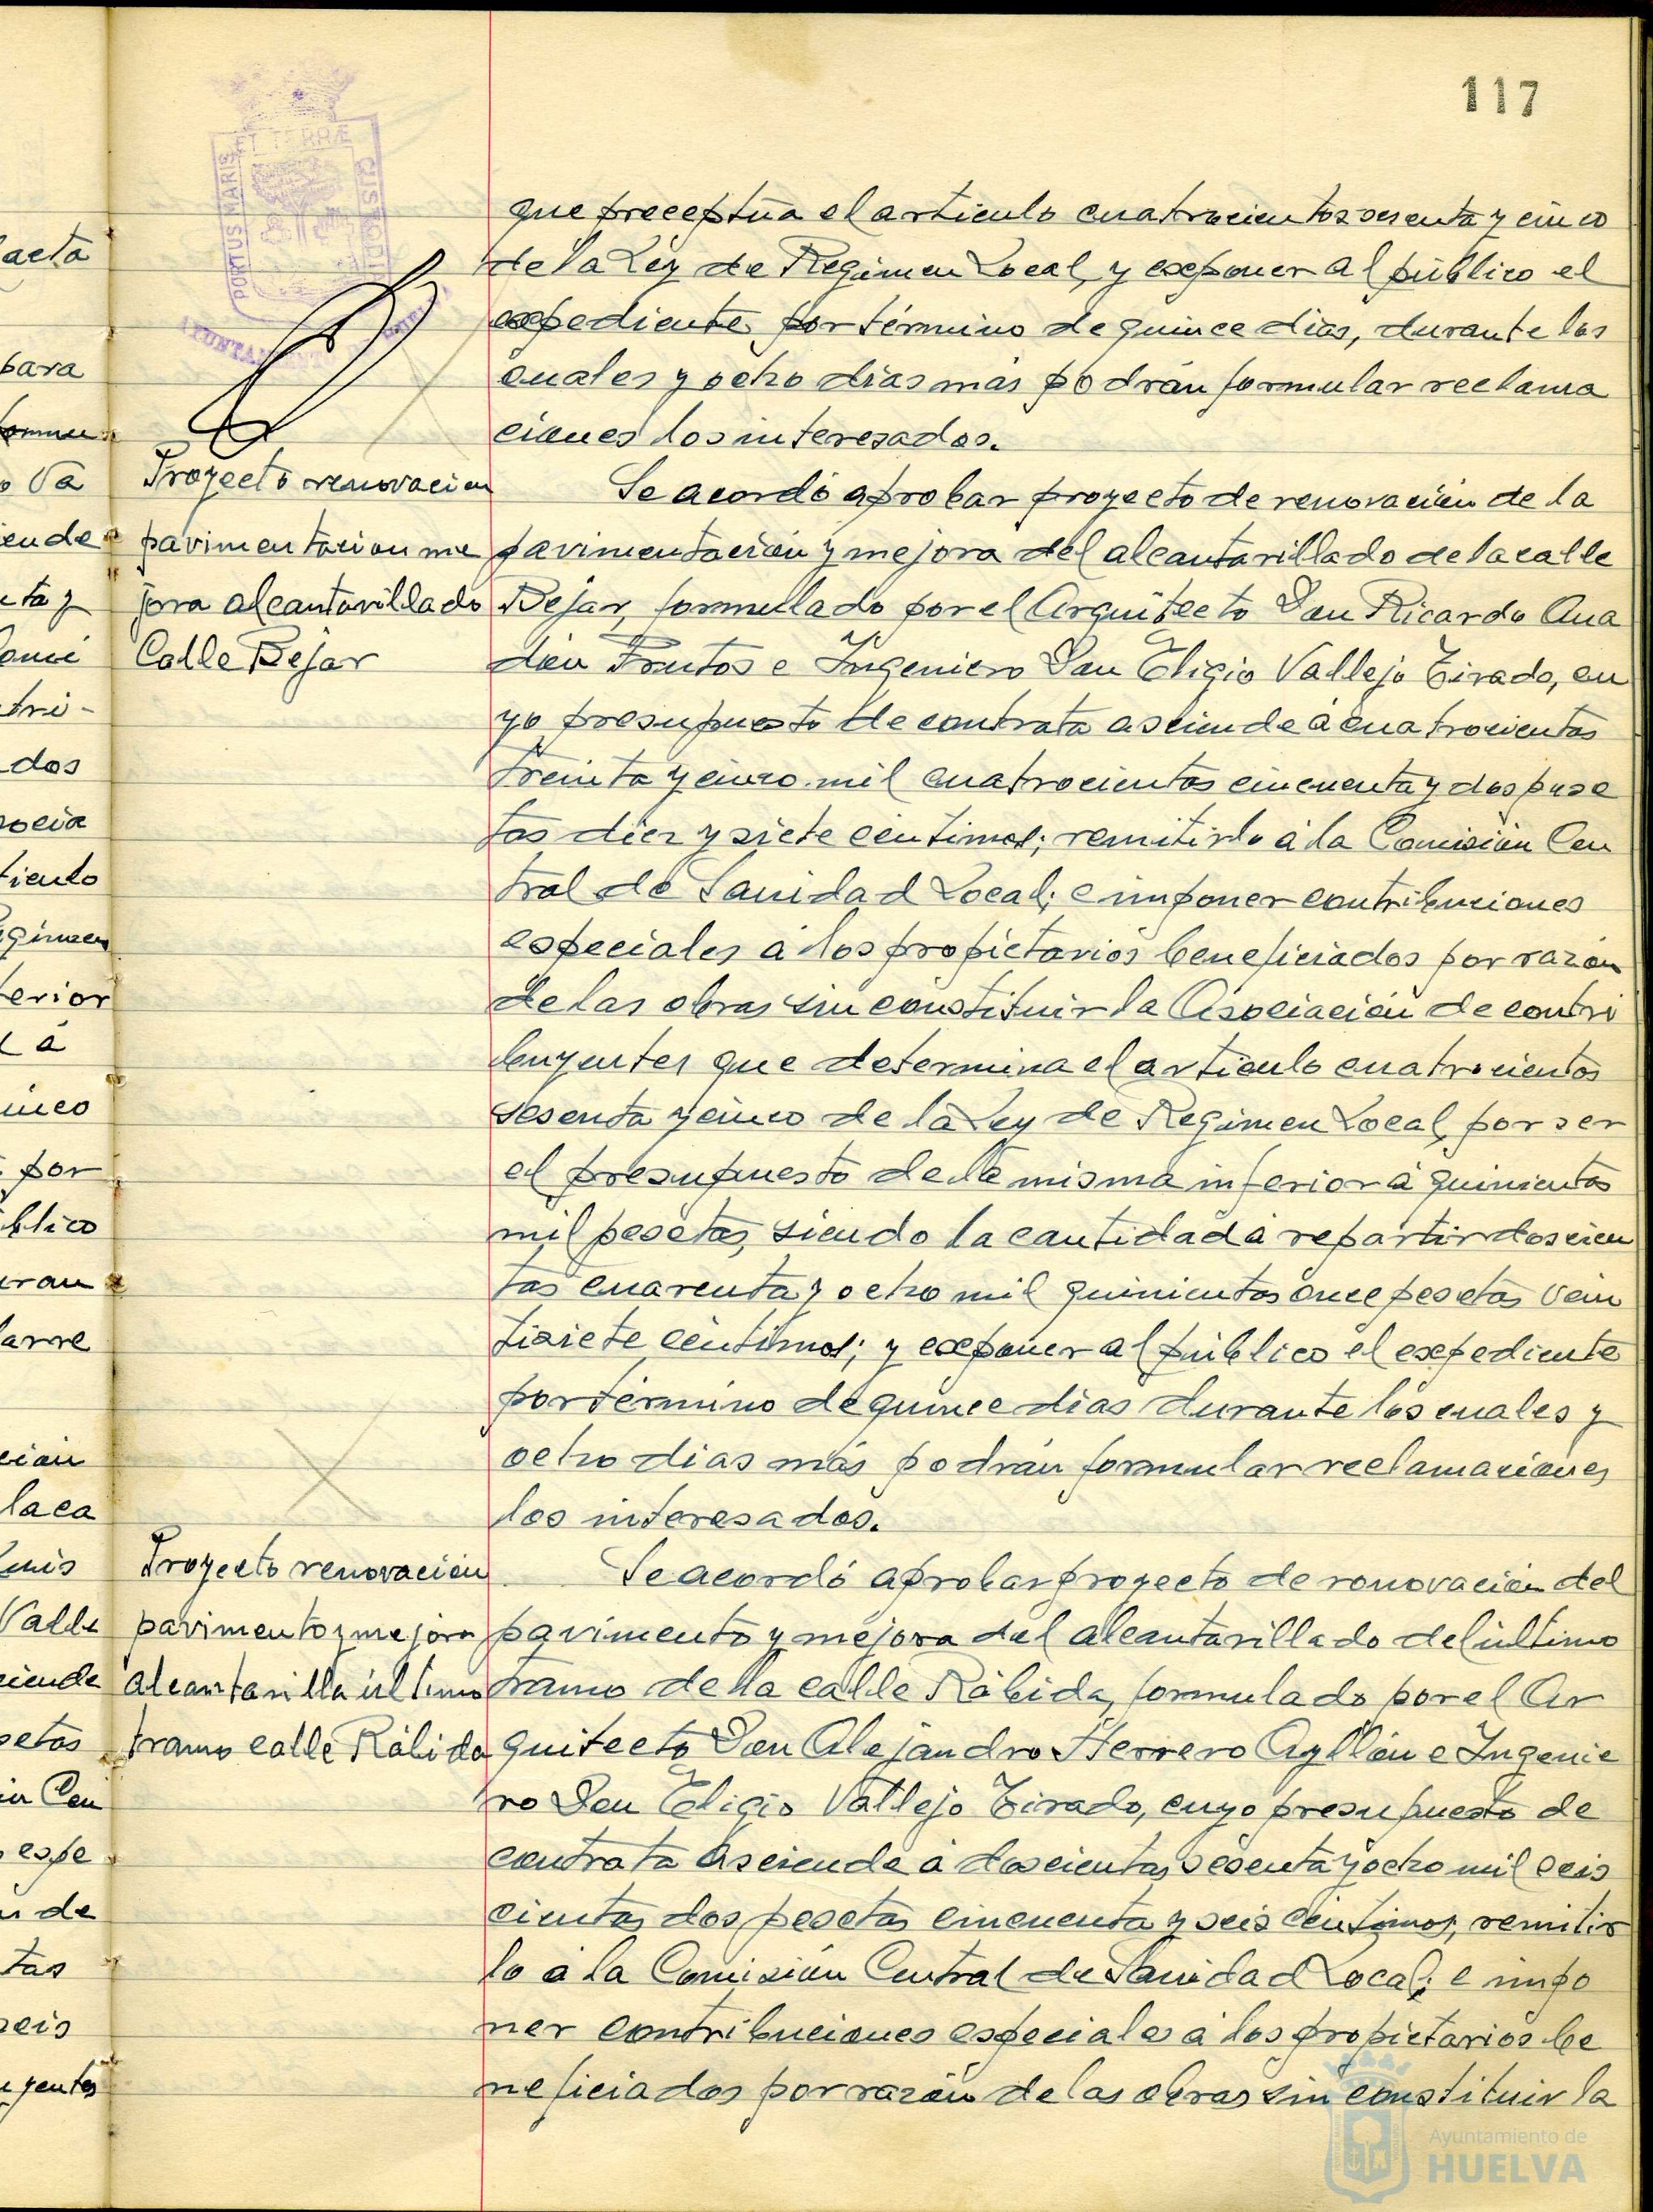 117
PORTUS MARIS
ET TERRÆ
CUSTODIA
que preceptúa el articulo cuatrocientos sesenta y cinco
de la Ley de Regimen Local, y exponer al público el
expediente por término de quince dias, durante los
cuales y ocho dias más podrán formular reclama
ciones los interesados.
Proyecto renovacion
pavimentacion me
jora alcantarillado
Calle Bejar
Se acordó aprobar proyecto de renovación de la
pavimentación y mejora del alcantarillado de la calle
Bejar, formulado por el Arquitecto Don Ricardo Ana
dón Frutos e Ingeniero Don Eligio Vallejo Tirado, cu
yo presupuesto de contrata asciende á cuatrocientas
treinta y cinco mil cuatrocientas cincuenta y dos pese
tas diez y siete centimos; remitirlo á la Comisión Cen
tral de Sanidad Local; e imponer contribuciones
especiales á los propietarios beneficiados por razón
de las obras sin constituir la Asociación de contri
buyentes que determina el articulo cuatrocientos
sesenta y cinco de la Ley de Regimen Local, por ser
el presupuesto de la misma inferior á quinientas
mil pesetas, siendo la cantidad á repartir doscien
tas cuarenta y ocho mil quinientas once pesetas vein
tisiete céntimos; y exponer al público el expediente
por término de quince dias durante los cuales y
ocho dias más podrán formular reclamaciones
los interesados.
Proyecto renovación
pavimento y mejora
alcantarilla último
tramo calle Rábida
Se acordó aprobar proyecto de renovación del
pavimento y mejora del alcantarillado del último
tramo de la calle Rábida, formulado por el Ar
quitecto Don Alejandro Herrero Ayllón e Ingenie
ro Don Eligio Vallejo Tirado, cuyo presupuesto de
contrata asciende á doscientas sesenta y ocho mil seis
cientas dos pesetas cincuenta y seis céntimos, remitir
lo á la Comisión Central de Sanidad Local; e impo
ner contribuciones especiales á los propietarios be
neficiados por razón de las obras sin constituir la
Ayuntamiento de
HUELVA